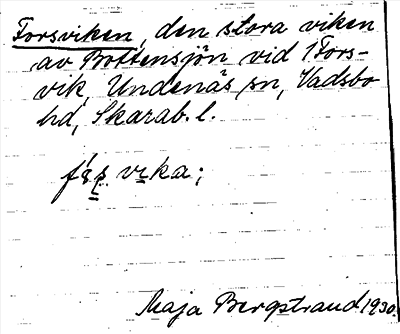 Forsviken, den stora viken
av Bottensjön vid 1 Fors-
vik, Undenäs sn, Vadsbo
hd, Skarab. l.
vɩka;
Maja Bergstrand 1930.